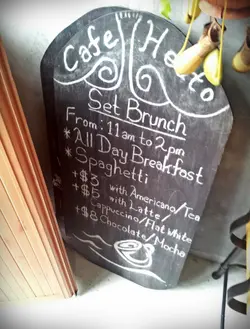 Cafe Hetto
Set Brunch
From: 11am to 2pm
* All Day Breakfast
* Spaghetti
+$3 with Americano/Tea
+$5 with Latte/
Cappuccino/Flat White
+$8 Chocolate/Mocha